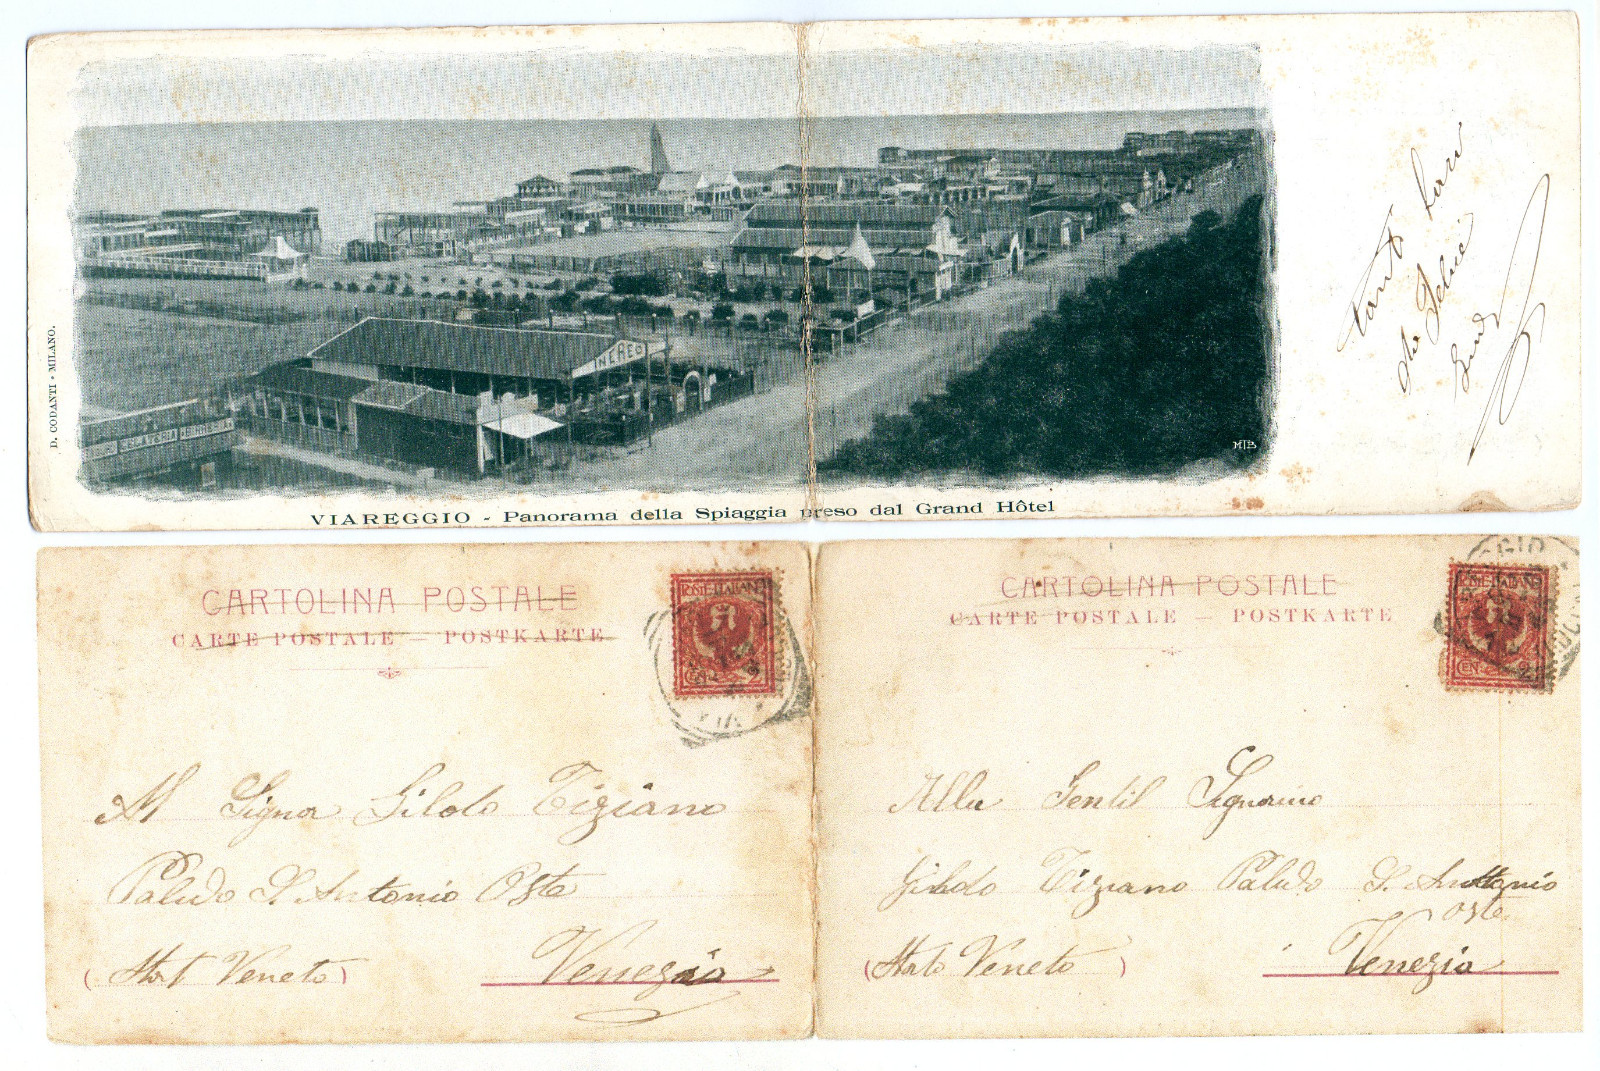 D. CODANTI • MILANO.
NEREO
BIRRERIA
MTB
VIAREGGIO - Panorama della Spiaggia preso dal Grand Hôtel
tanti
Felice
CARTOLINA POSTALE
CARTE POSTALE — POSTKARTE
POSTE ITALIANE
CEN. 2
Al Signor Gildo Tiziano
Paludo S. Antonio Oste
Veneto)
Venezia
CARTOLINA POSTALE
CARTE POSTALE — POSTKARTE
POSTE ITALIANE
CEN. 2
Alla Gentil Signorina
Gildo Tiziano Paludo S. Antonio
Oste
Veneto )
Venezia